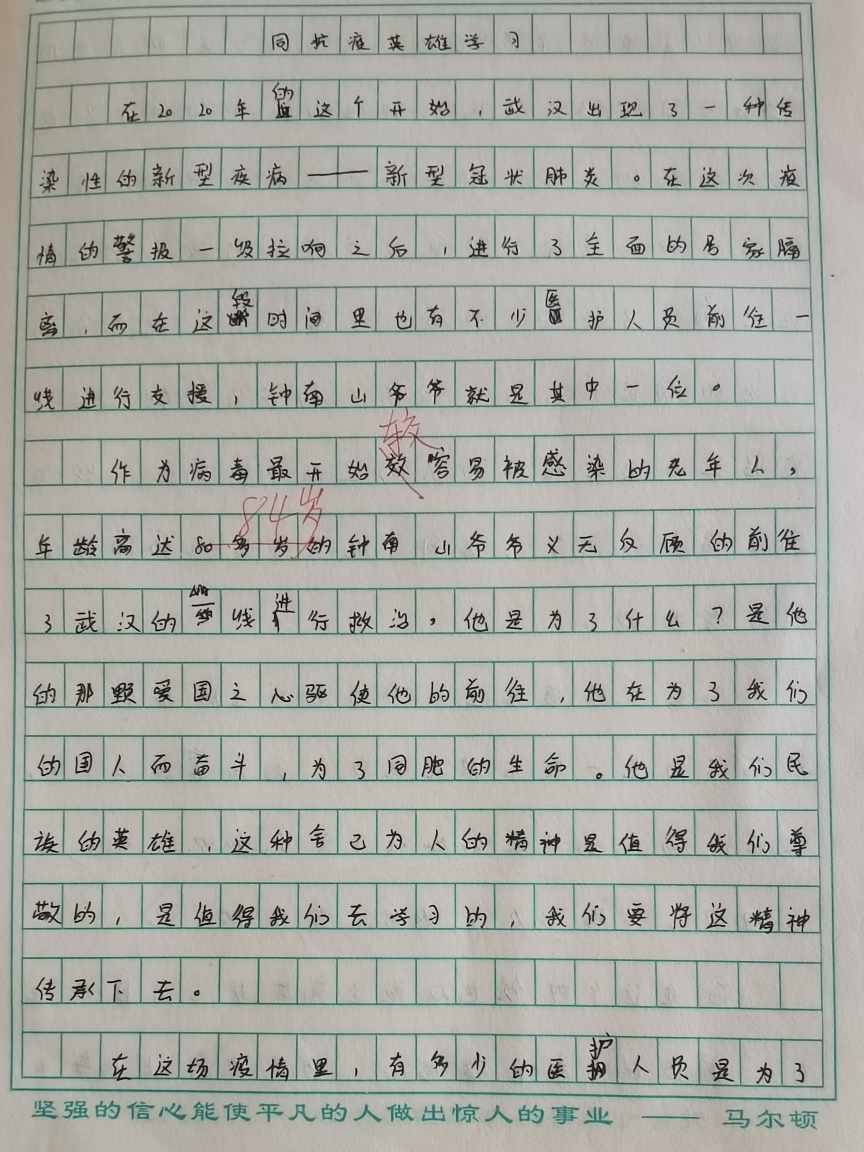 向抗疫英雄学习
在2020年的这个开始，武汉出现了一种传
染性的新型疾病——新型冠状肺炎。在这次疫
情的警报一级拉响之后，进行了全面的居家隔
离，而在这段时间里也有不少医护人员前往一
线进行支援，钟南山爷爷就是其中一位。
较
作为病毒最开始效容易被感染的老年人，
84岁
年龄高达80多岁的钟南山爷爷义无反顾的前往
了武汉的一线进行救治。他是为了什么？是他
的那颗爱国之心驱使他的前往，他在为了我们
的国人而奋斗，为了同胞的生命。他是我们民
族的英雄，这种舍己为人的精神是值得我们尊
敬的，是值得我们去学习的，我们要将这精神
传承下去。
在这场疫情里，有多少的医护人员是为了
坚强的信心能使平凡的人做出惊人的事业 —— 马尔顿